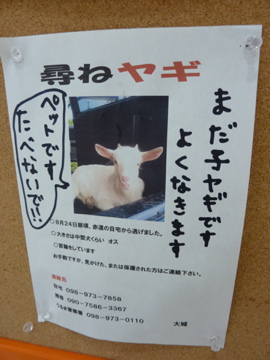 尋ねヤギ
まだ子ヤギです
よくなきます
ペットです
たべないで!!
○8月24日昼頃、赤道の自宅から逃げました。
○大きさは中型犬くらい オス
○首輪をしています
お手数ですが、見かけた、または保護された方はご連絡下さい。
連絡先
自宅 098-973-7858
携帯 090-7586-3367
うるま警察署 098-973-0110
大城